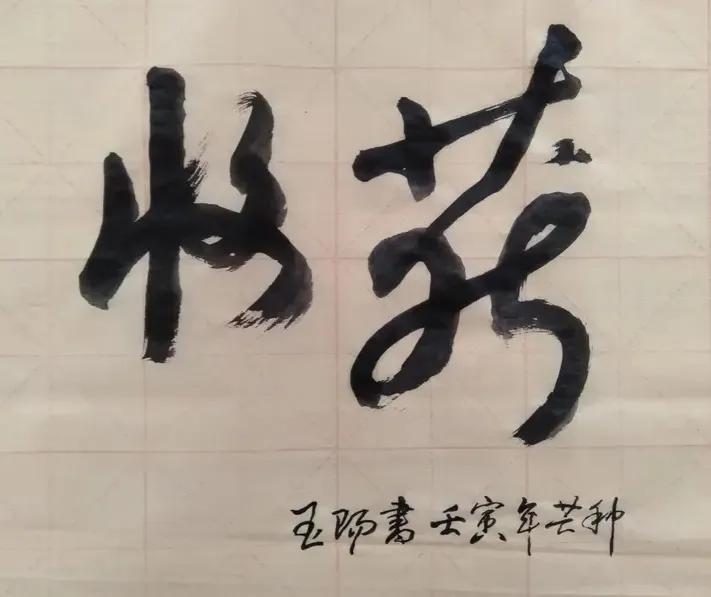 收获
玉阳書壬寅年芒种